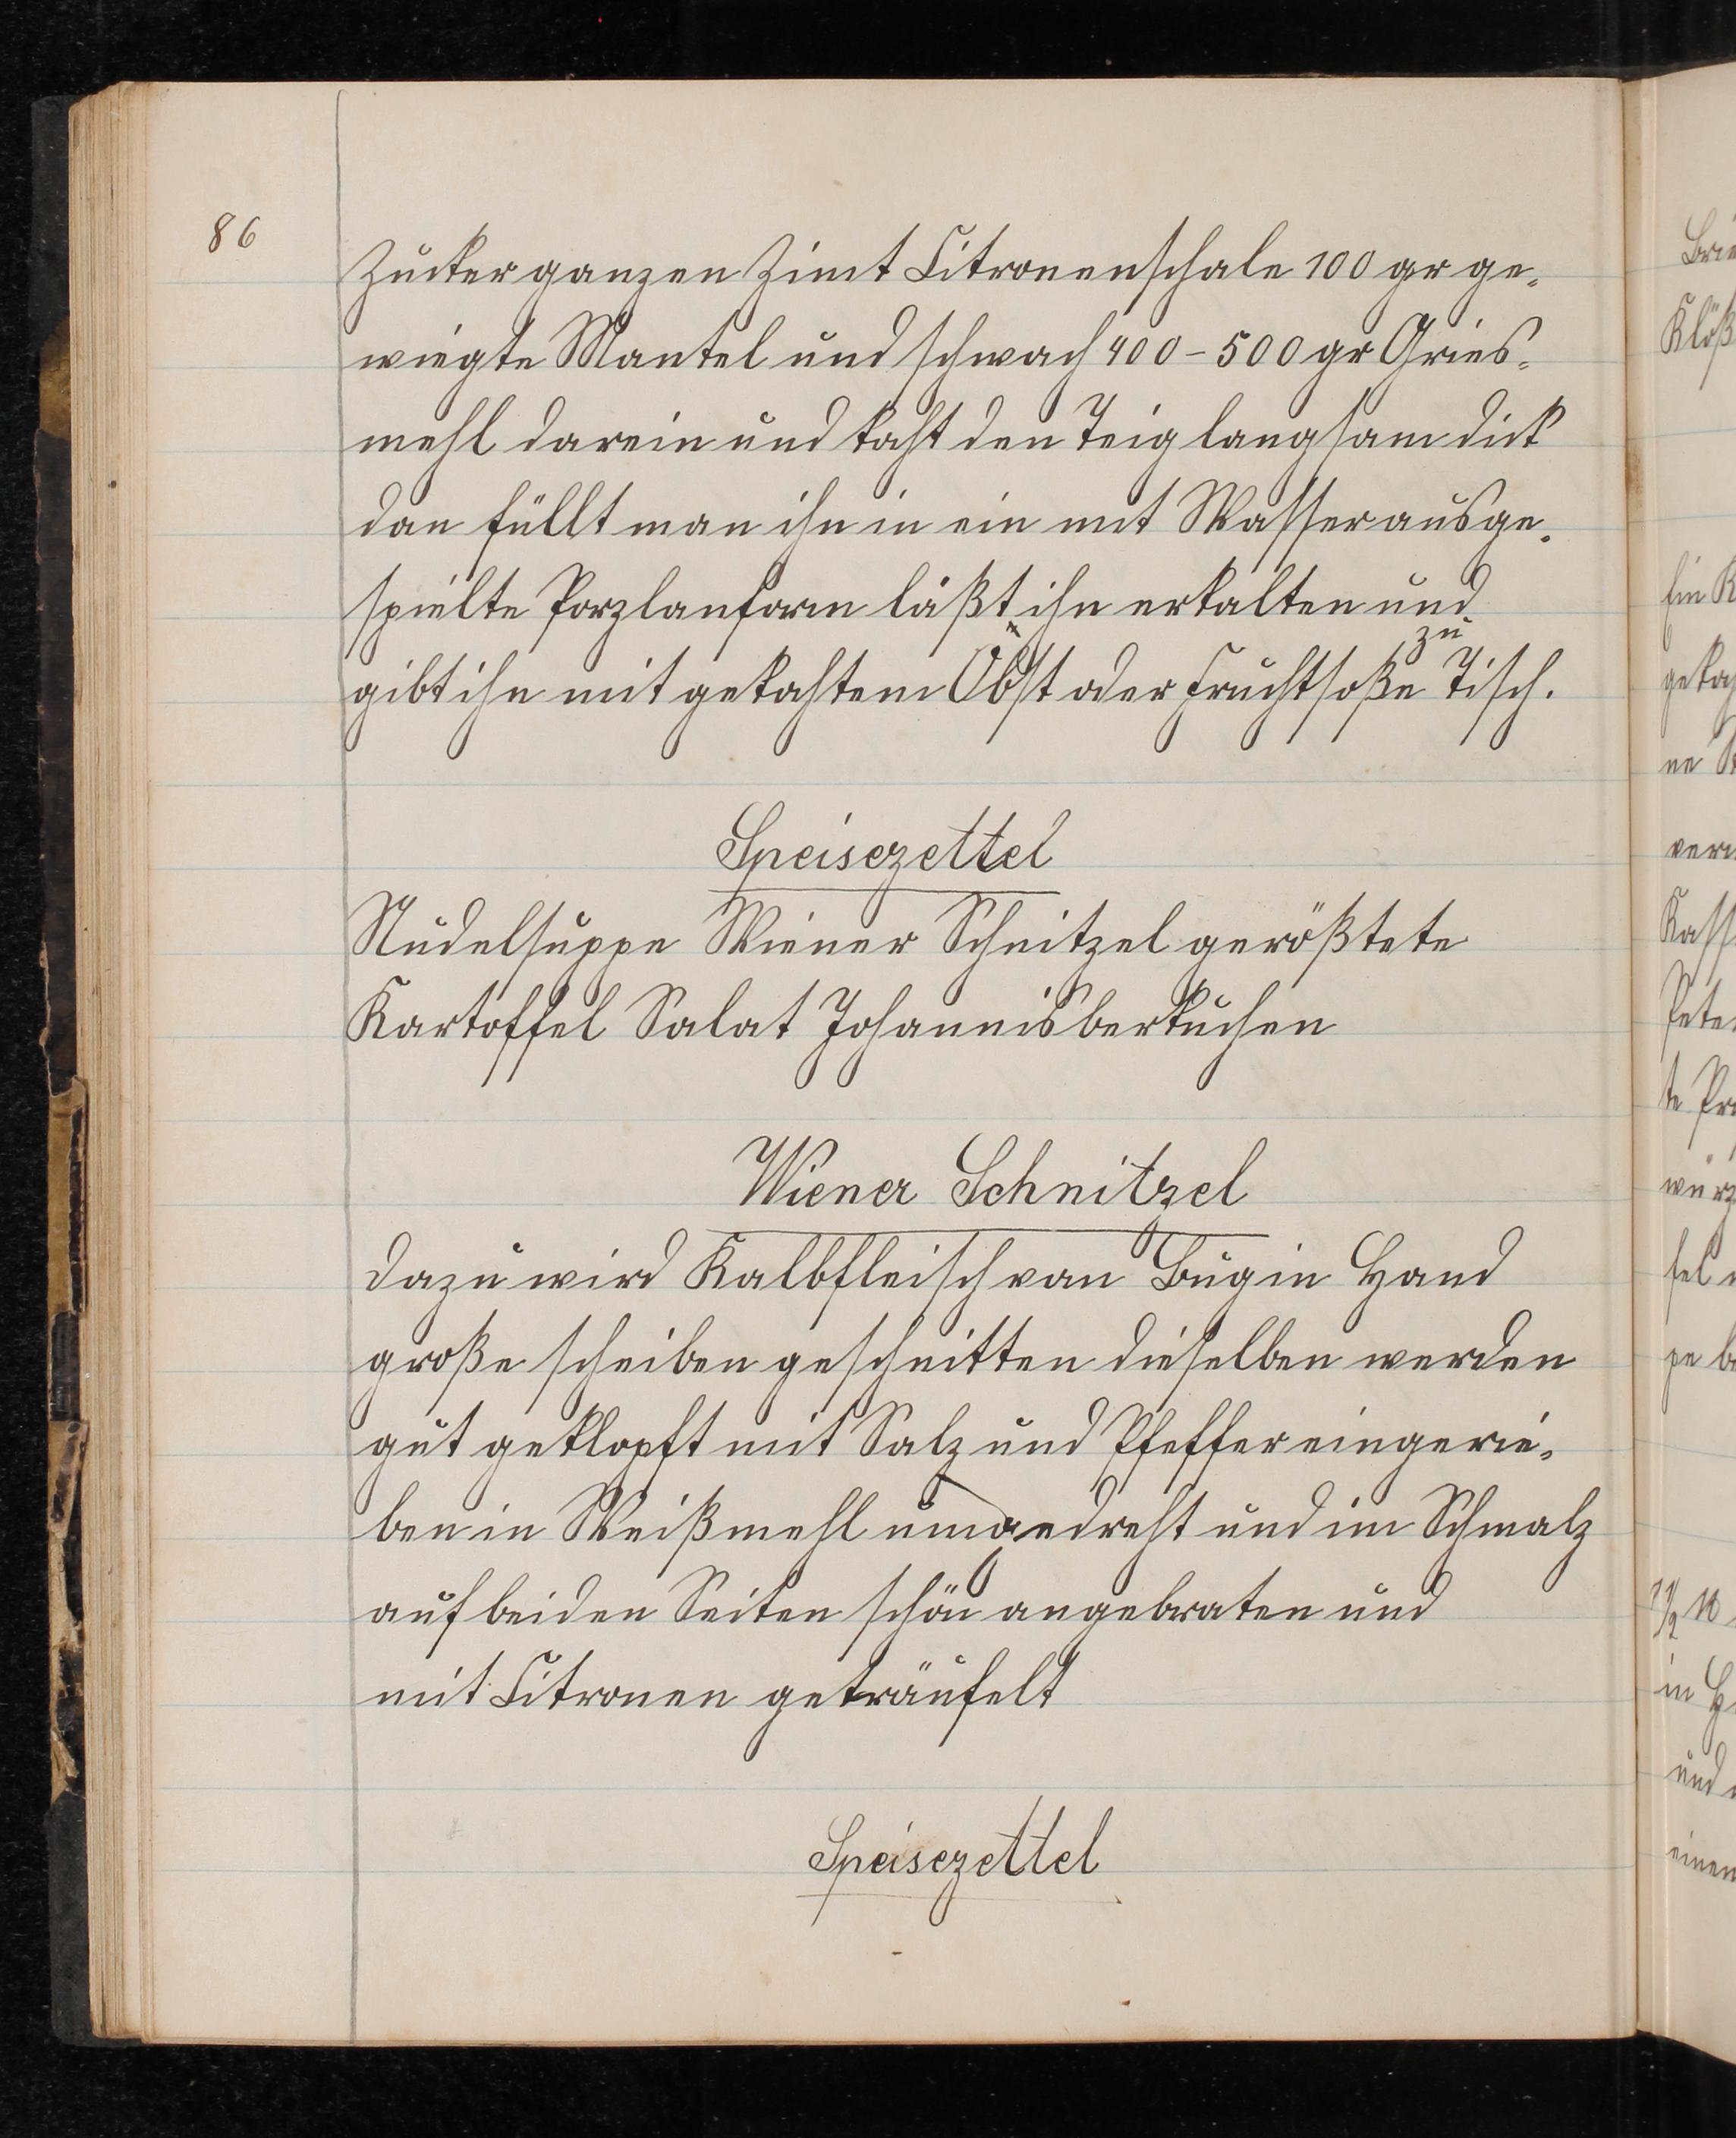 86
Zucker ganzen Zimt Citronenschale 100 gr ge-
wiegte Mantel und schwach 400 - 500 gr Gries-
mehl darein und kocht den Teig langsam dick
dan füllt man ihn in ein mit Wasser ausge-
spielte Porzlanform läßt ihn erkalten und
zu
gibt ihn mit gekochtem Obst oder Fruchtsoße Tisch.
Speisezettel
Nudelsuppe Wiener Schnitzel gerößtete
Kartoffel Salat Johannisberkuchen
Wiener Schnitzel
dazu wird Kalbfleisch von Bug in Hand
große scheiben geschnitten dieselben werden
gut geklopft mit Salz und Pfeffer eingerie-
ben in Weißmehl umgedreht und im Schmalz
auf beiden Seiten schön angebraten und
mit Citronen geträufelt
Speisezettel